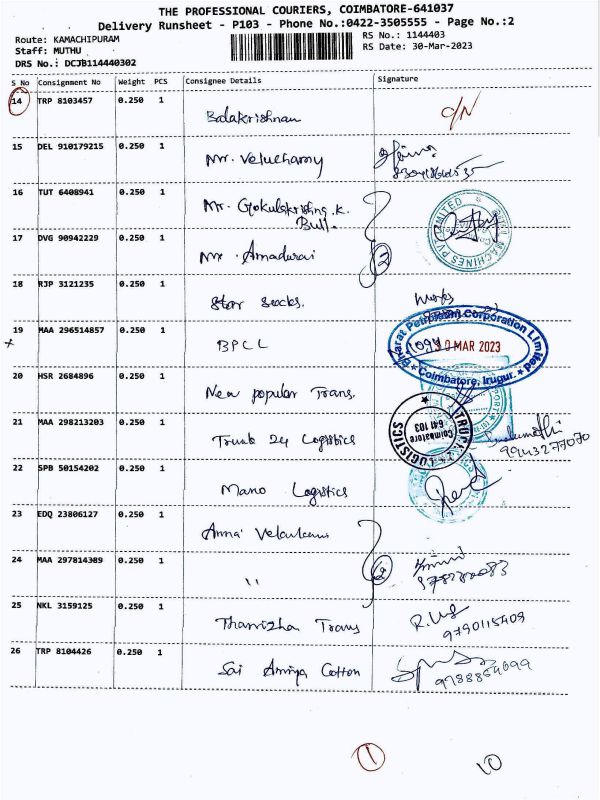 THE PROFESSIONAL COURIERS, COIMBATORE-641037
Delivery Runsheet - P103 - Phone No.:0422-3505555 - Page No.:2
Route: KAMACHIPURAM
RS No.: 1144403
Staff: MUTHU
RS Date: 30-Mar-2023
DRS No.: DCJB114440302
S No Consignment No Weight PCS Consignee Details Signature
14 TRP 8103457 0.250 1 Balakrishnan O/N
15 DEL 910179215 0.250 1 Mr. Veluchamy
16 TUT 6408941 0.250 1 Mr. Gokulakrishna. K.
Bull.
17 DVG 90942229 0.250 1 Mr. Annadurai 2
18 RJP 3121235 0.250 1 Star Stocks.
19 MAA 296514857 0.250 1 BPCL
x
Bharat Petroleum Corporation Limited
30 MAR 2023
Coimbatore, Irugur.
20 HSR 2684896 0.250 1 New popular Trans.
21 MAA 298213203 0.250 1 Trunk 24 Logistics
Coimbatore
641 103
LOGISTICS
9943277070
22 SPB 50154202 0.250 1 Mano Logistics
23 EDQ 23806127 0.250 1 Annai
24 MAA 297814389 0.250 1 " 2
25 NKL 3159125 0.250 1 Thamizha Trans
9790115409
26 TRP 8104426 0.250 1 Sai Cotton
9788854699
1 10